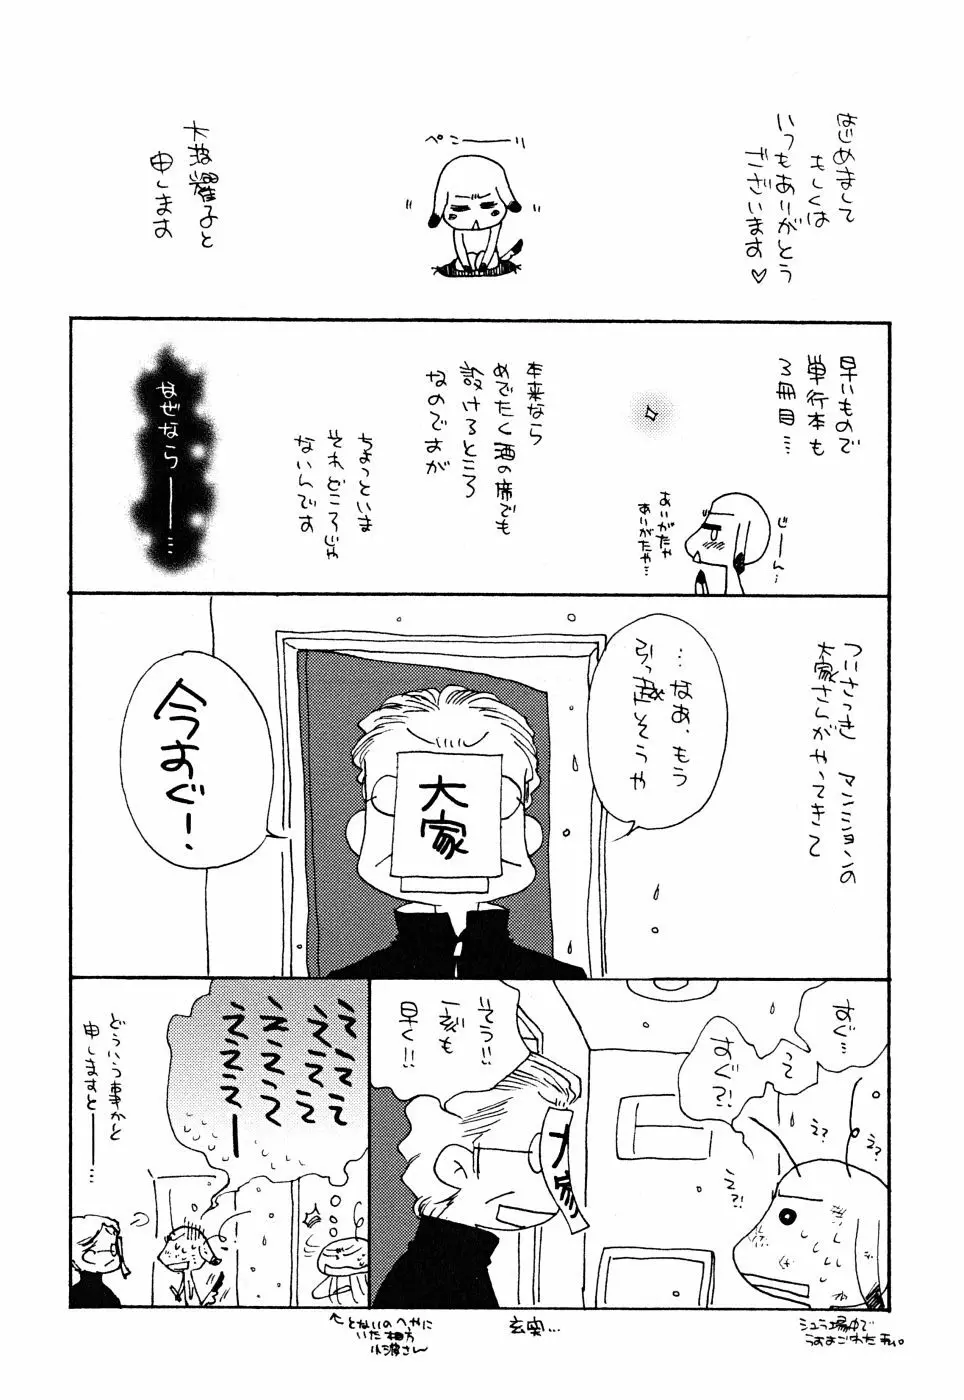 はじめまして
もしくは
いつもありがとう
ございます♡
ペこーーーり
大波耀子と
申します
早いもので
単行本も
3冊目…
じーーん…
ありがたや
ありがたや…
本来なら
めでたく酒の席でも
設けるところ
なのですが
ちょっといま
それどころじゃ
ないんです
なぜなら――…
ついさっき マンションの
大家さんがやってきて
…なあ、もう
引っ越そうや
大家
今すぐ!
すぐ…
って
すぐ?!
え?
え?
え?!
え?!
そう!!
一刻も
早く!!
大家
ええええ
ええええ
ええええ
えええー
どういう事かと
申しますと――…
玄関…
↑となりのへやに
いた相方